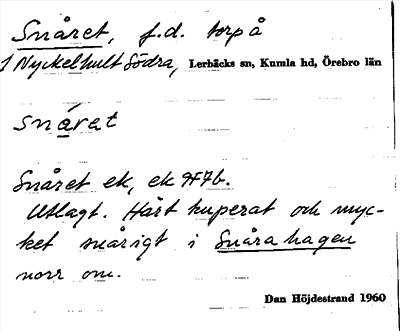 Snåret, f.d. torp å
1 Nyckelhult Södra, Lerbäcks sn, Kumla hd, Örebro län
snåret
Snåret ek, ek 9F7b.
Utlagt. Hårt kuperat och myc-
ket snårigt i Snåra hagen
norr om.
Dan Höjdestrand 1960